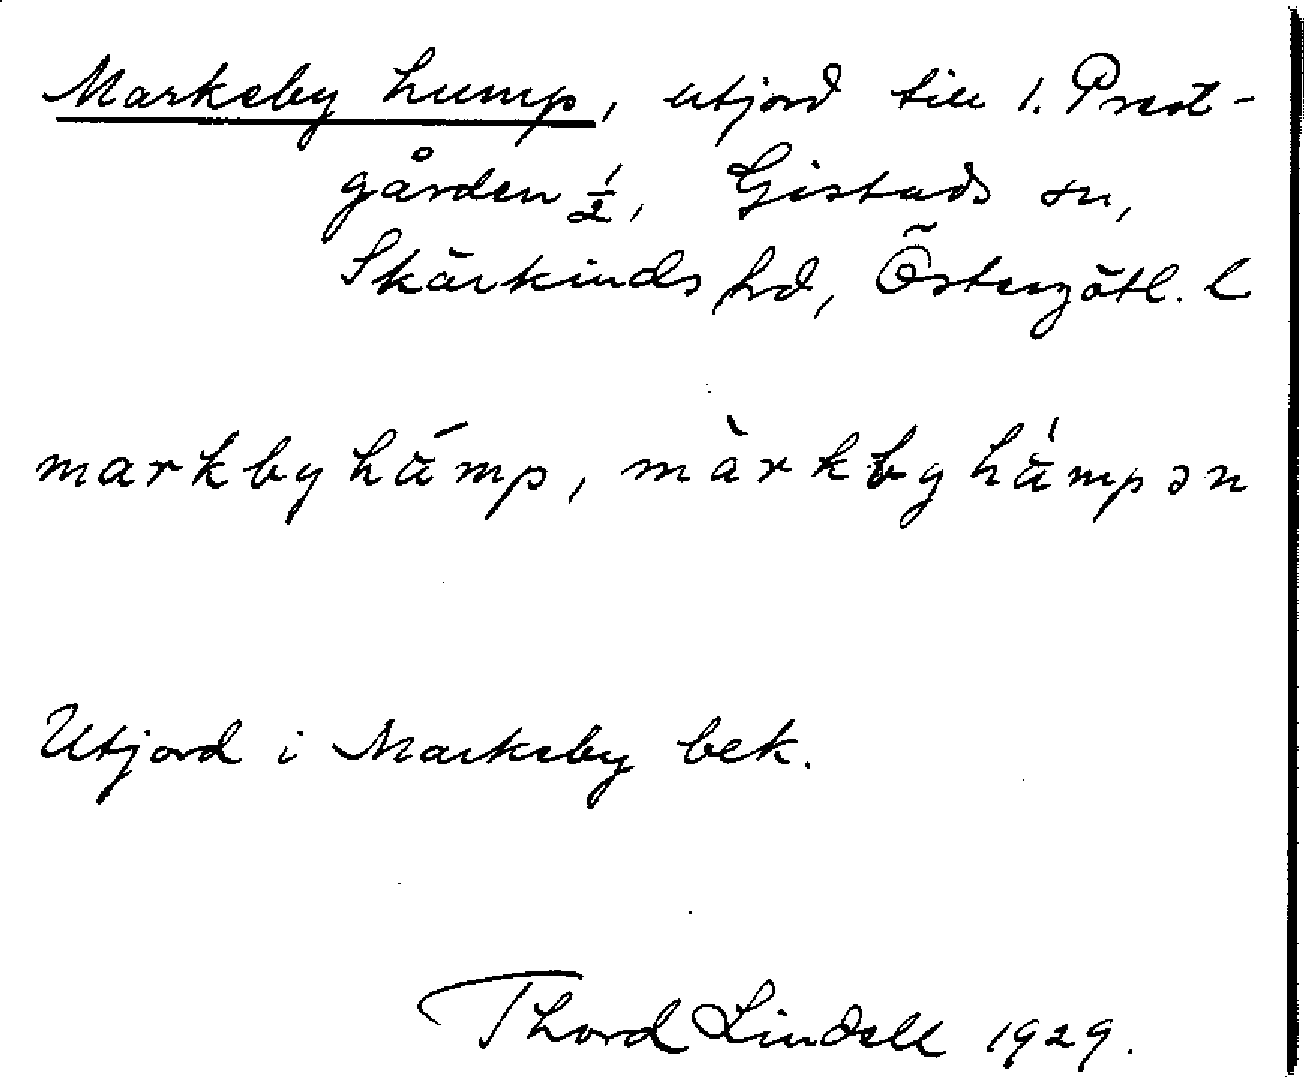 Markeby hump, utjord till 1. Prest-
gården ½, Gistads sn,
Skärkinds hd, Östergötl. l
markbyhámp, màrkbyhámpən
Utjord i Markeby bek.
Thord Lindell 1929.